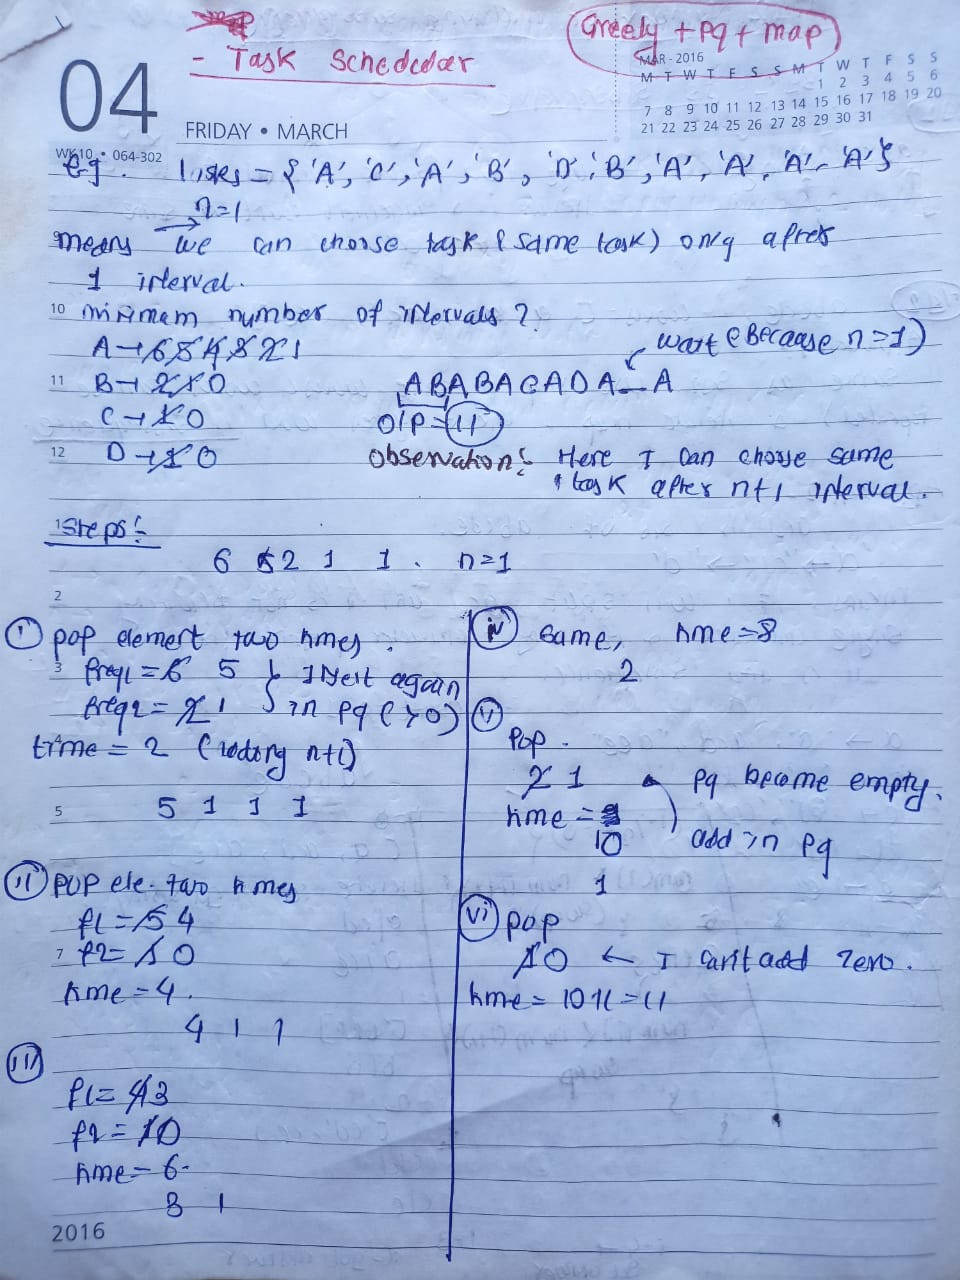 - Task Scheduler
Greedy + pq + map
04
FRIDAY • MARCH
MAR - 2016
M T W T F S S M T W T F S S
1 2 3 4 5 6
7 8 9 10 11 12 13 14 15 16 17 18 19 20
21 22 23 24 25 26 27 28 29 30 31
WK10 • 064-302
Eg. tasks = { 'A', 'C', 'A', 'B', 'D', 'B', 'A', 'A', 'A', 'A' }
n=1
means we can choose task (same task) only after
1 interval.
10 minimum number of intervals ?
A → 6 5 4 3 2 1
wait (Because n=1)
11 B → 2 1 0
ABABACADA_A
C → 1 0
O/P = 11
12 D → 1 0
Observation: Here I can choose same
task after n+1 interval.
1 Steps:
6 2 1 1 . n=1
2
(i) pop element two times.
3 freq1 = 6 5 } Insert again
freq2 = 2 1 } in pq (>0)
time = 2 (adding n+1)
5 5 1 1 1
(ii) pop ele. two times
f1 = 5 4
7 f2 = 1 0
time = 4.
4 1 1
(iii)
f1 = 4 3
f2 = 1 0
time = 6.
3 1
2016
(iv) same, time = 8
2
(v)
pop.
2 1 pq become empty.
time =
10 add in pq
1
(vi) pop
1 0 ← I can't add zero.
time = 10+1 = 11